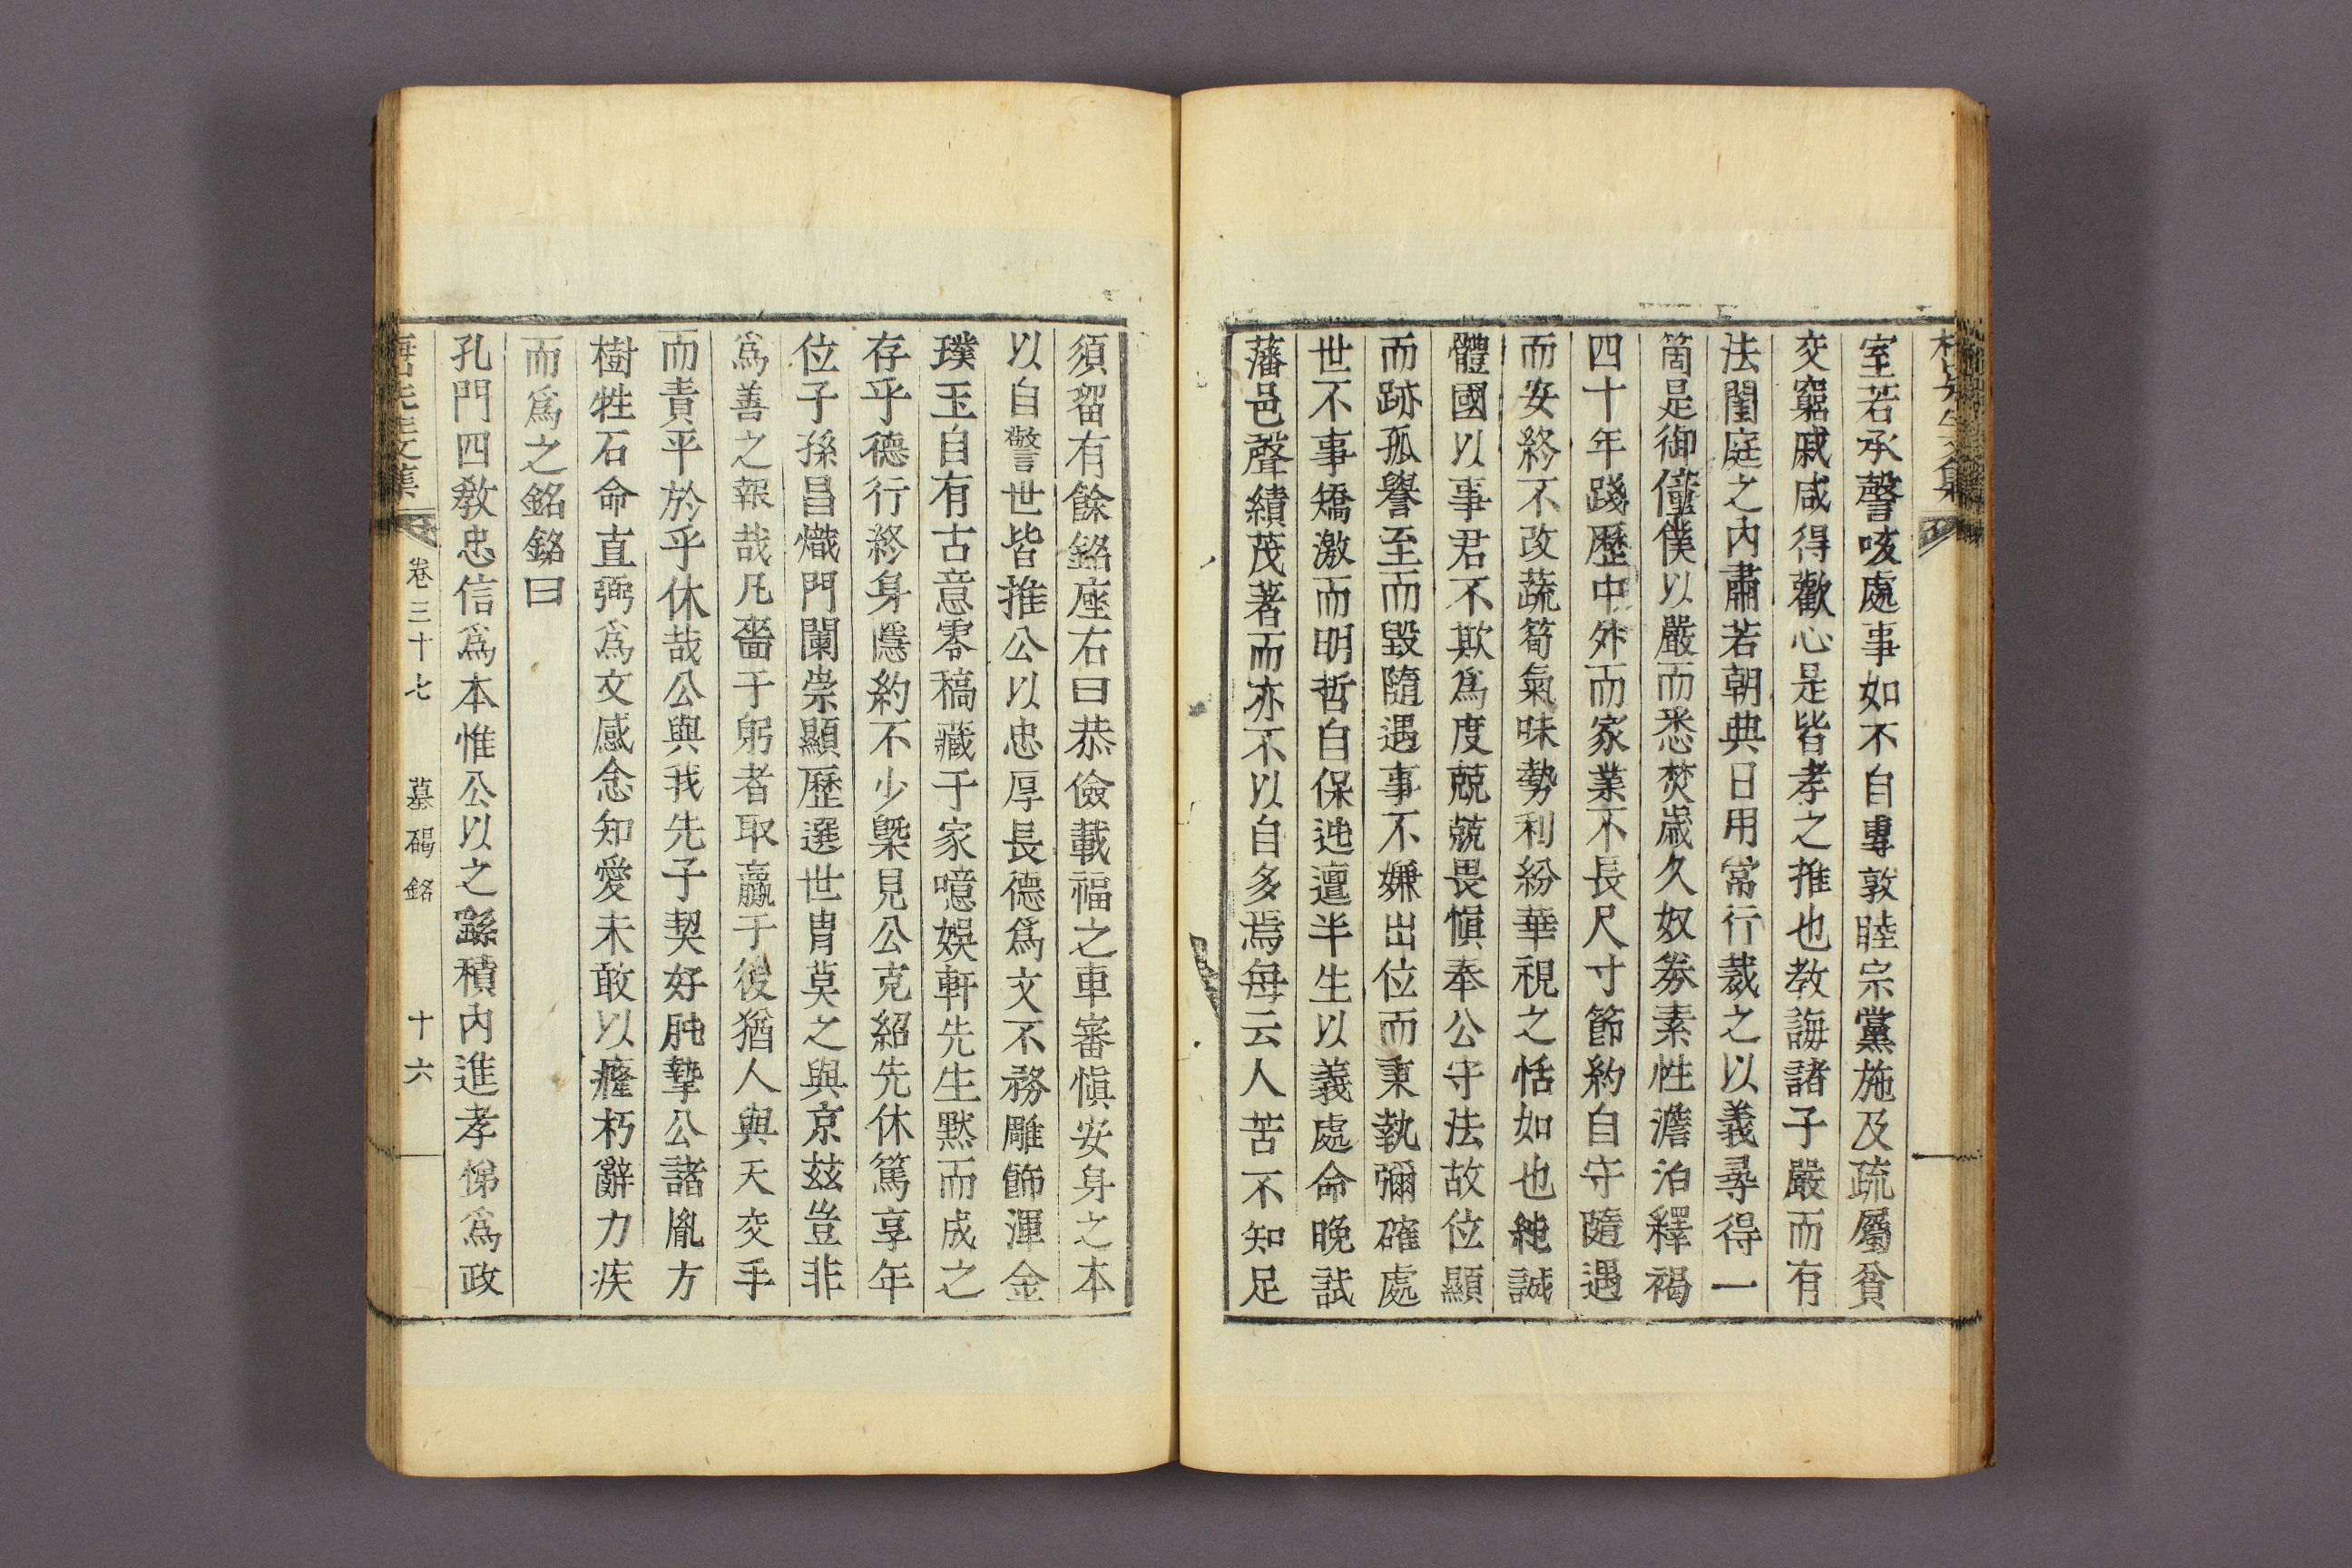 室若承謦咳處事如不自專敦睦宗黨施及疏屬貧
交窮戚咸得歡心是皆孝之推也教誨諸子嚴而有
法閨庭之內肅若朝典日用常行裁之以義尋得一
箇是御僮僕以嚴而悉焚歲久奴券素性澹泊釋褐
四十年踐歷中外而家業不長尺寸節約自守隨遇
而安終不改蔬筍氣味勢利紛華視之恬如也純誠
體國以事君不欺爲度兢兢畏愼奉公守法故位顯
而跡孤譽至而毀隨遇事不嫌出位而秉執彌確處
世不事矯激而明哲自保迍邅半生以義處命晚試
藩邑聲績茂著而亦不以自多焉每云人苦不知足
須留有餘銘座右曰恭儉載福之車審愼安身之本
以自警世皆推公以忠厚長德爲文不務雕飾渾金
璞玉自有古意零稿藏于家噫娛軒先生黙而成之
存乎德行終身隱約不少槩見公克紹先休篤享年
位子孫昌熾門闌崇顯歷選世胄莫之與京玆豈非
爲善之報哉凡嗇于躬者取贏于後猶人與天交手
而責平於乎休哉公與我先子契好肫摯公諸胤方
樹牲石命直弼爲文感念知愛未敢以癃朽辭力疾
而爲之銘銘曰
孔門四教忠信爲本惟公以之繇積內進孝悌爲政
卷三十七 墓碣銘 十六